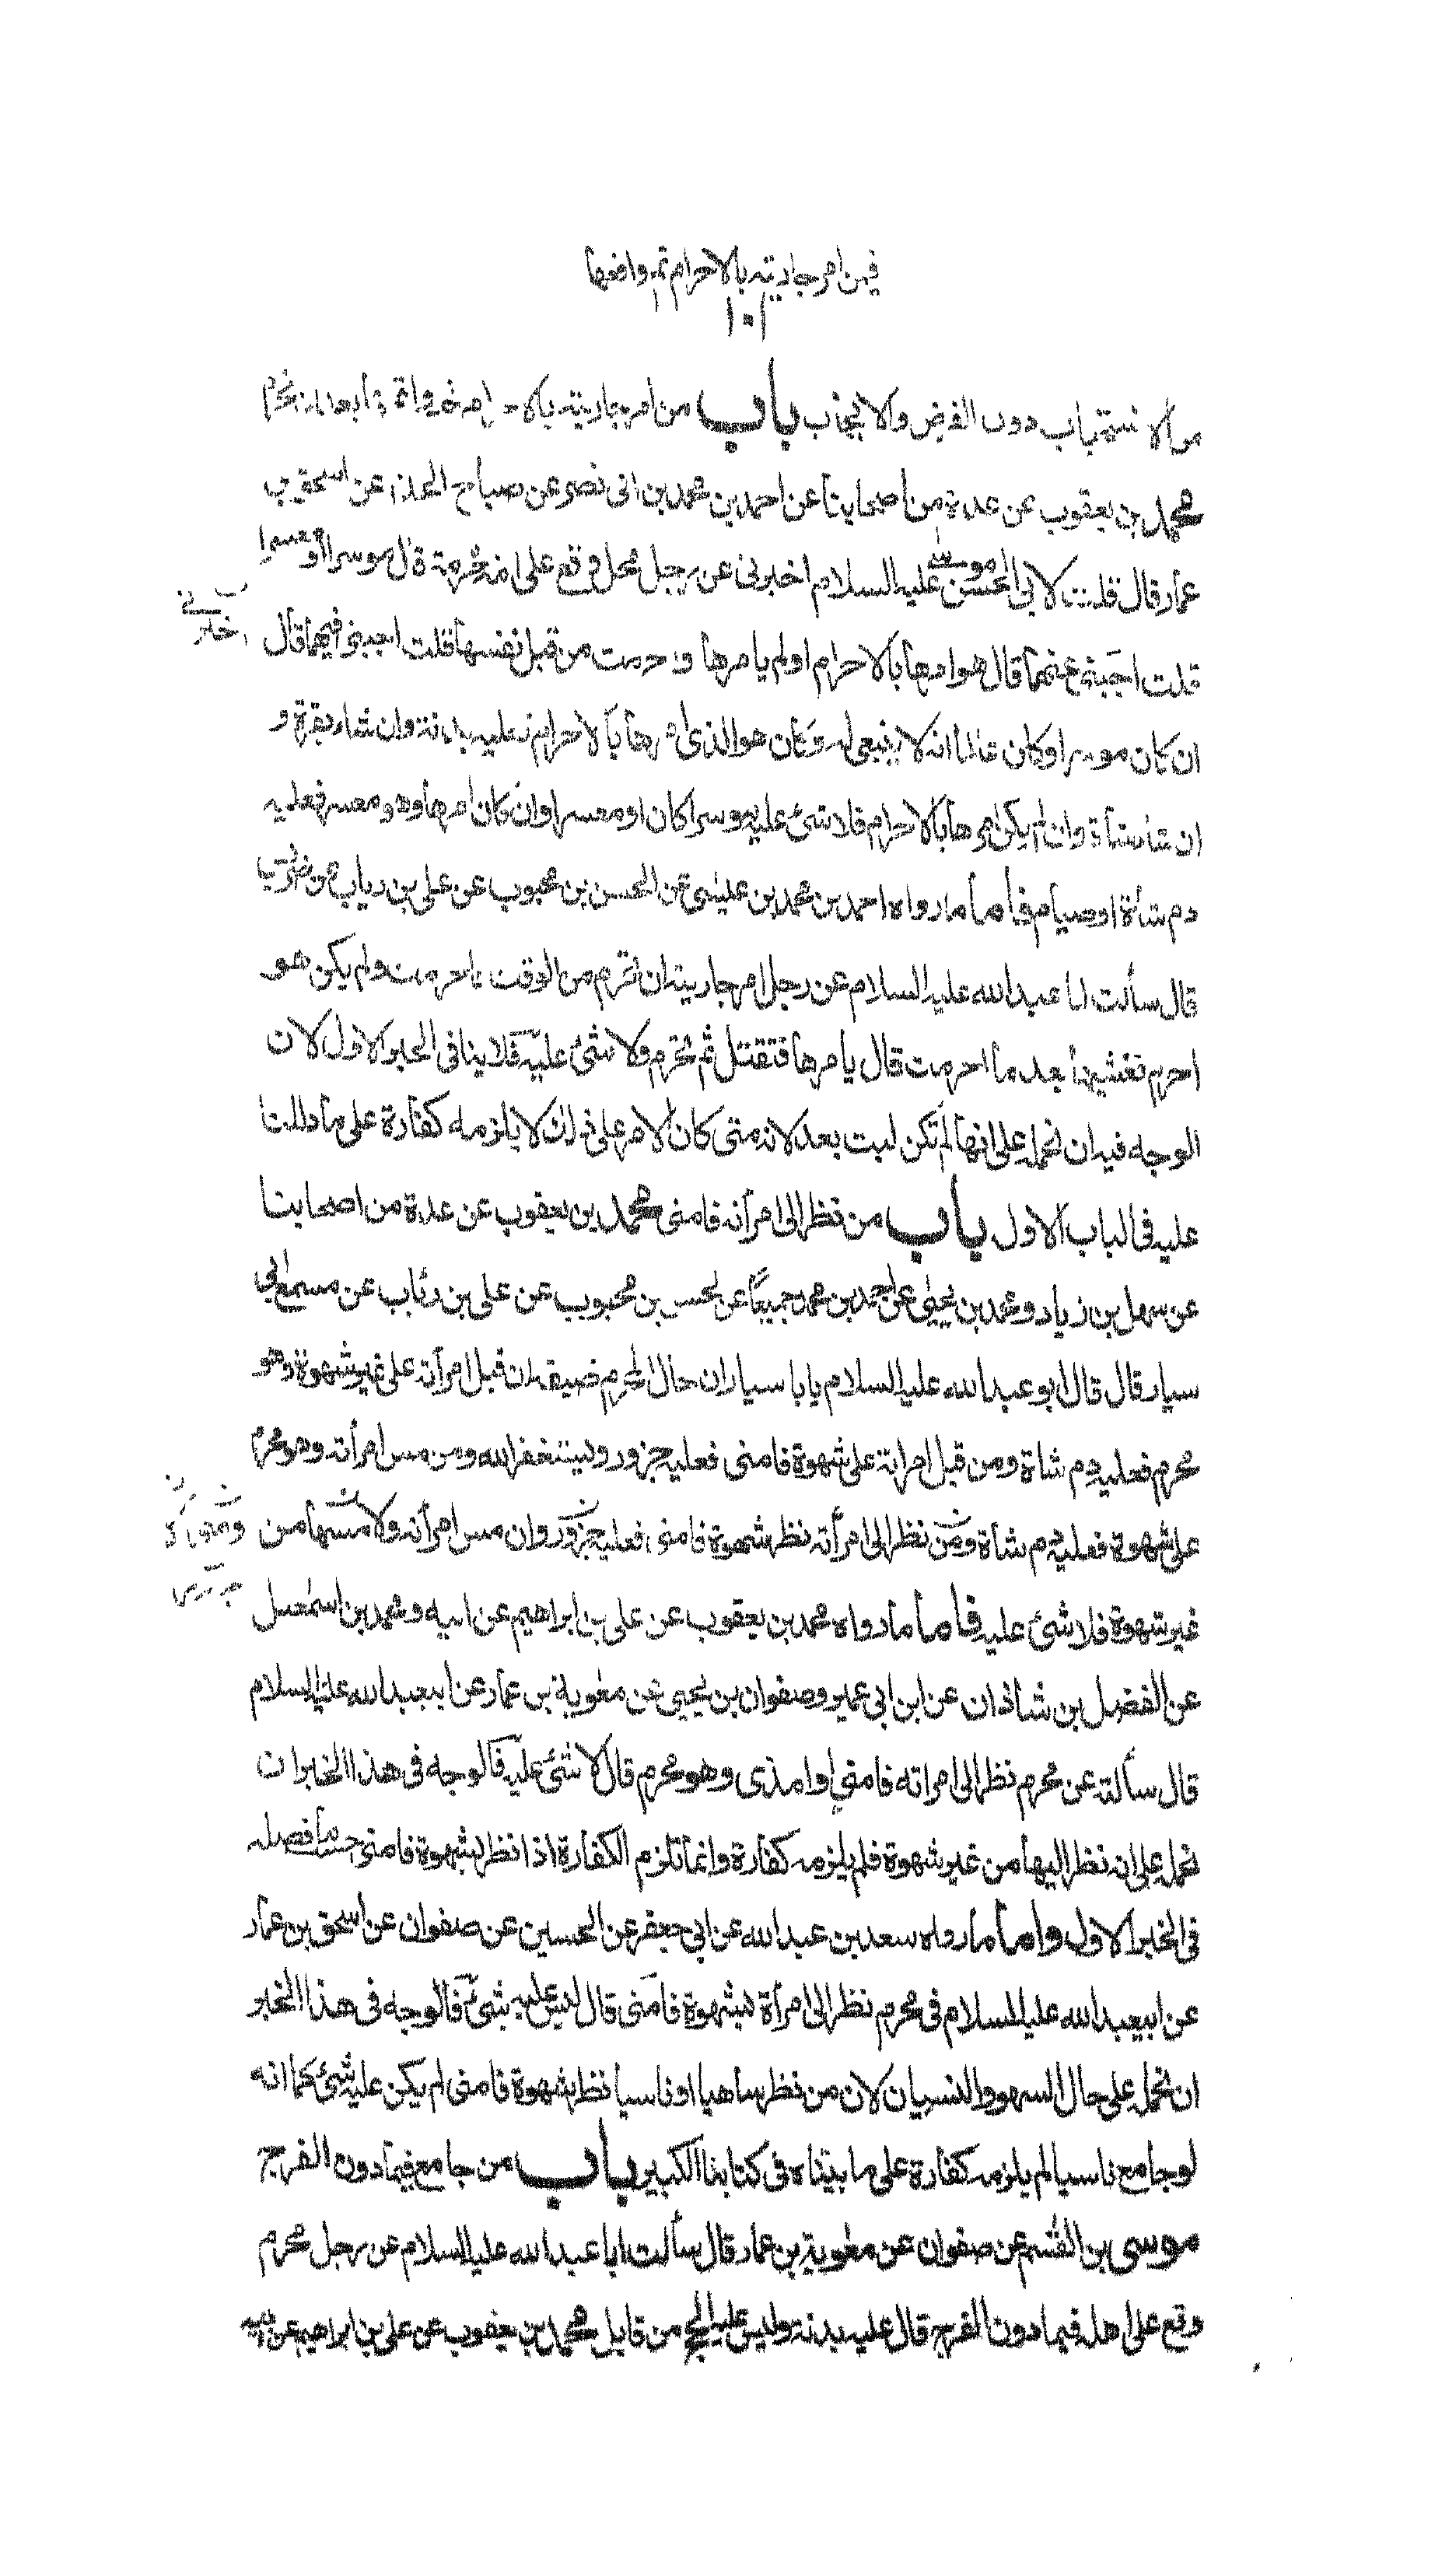 فيمن امر جاريته بالاحرام ثم واقعها
١٠١
من الاستحباب دون الفرض والايجاب باب من امر جاريته بالاحرام ثم واقعها بعد ان تحرم
محمد بن يعقوب عن عدة من أصحابنا عن احمد بن محمد بن ابى نصر عن صباح الحذاء عن اسحق بن
عمار قال قلت لابى الحسن موسى عليه السلام اخبرنى عن رجل محل وقع على امة محرمة قال موسرا او معسرا
قلت اجبنى عنهما قال هو امرها بالاحرام او لم يامرها واحرمت من قبل نفسها قلت اجبنى فيهما قال
ان كان موسرا وكان عالما انه لا ينبغى له وكان هو الذى امرها بالاحرام فعليه بدنة وان شاء بقرة و
ان شاء شاة وان لم يكن امرها بالاحرام فلا شئ عليه موسرا كان او معسرا وان كان امرها وهو معسر فعليه
دم شاة او صيام فأما ما رواه احمد بن محمد بن عيسى عن الحسن بن محبوب عن على بن رياب عن ضريس
قال سألت ابا عبدالله عليه السلام عن رجل امر جاريته ان تحرم من الوقت فاحرمت ولم يكن هو
احرم فغشيها بعد ما احرمت قال يامرها فتغتسل ثم تحرم ولا شئ عليه فلا ينافى الخبر الاول لان
الوجه فيه ان نحمله على انها لم تكن لبت بعد لانه متى كان الامر على ذلك لا يلزمه كفارة على ما دللنا
عليه فى الباب الاول باب من نظر الى امرأته فامنى محمد بن يعقوب عن عدة من اصحابنا
عن سهل بن زياد ومحمد بن يحيى عن احمد بن محمد جميعا عن الحسن بن محبوب عن على بن رئاب عن مسمع ابى
سيار قال قال ابو عبدالله عليه السلام يا با سيار ان حال المحرم ضيقة ان قبل امرأته على غير شهوة وهو
محرم فعليه دم شاة ومن قبل امراته على شهوة فامنى فعليه جزور ويستغفر الله ومن مس امرأته وهو محرم
على شهوة فعليه دم شاة ومن نظر الى امرأته نظر شهوة فامنى فعليه جزور وان مس امرأته ولامسها من
غير شهوة فلا شئ عليه فأما ما رواه محمد بن يعقوب عن على بن ابراهيم عن ابيه ومحمد بن اسمعيل
عن الفضل بن شاذان عن ابن ابى عمير وصفوان بن يحيى عن معوية بن عمار عن ابيعبدالله عليه السلام
قال سألته عن محرم نظر الى امراته فامنى او امذى وهو محرم قال لا شئ عليه فالوجه فى هذا الخبر ان
نحمله على انه نظر اليها من غير شهوة فلم يلزمه كفارة وانما تلزم الكفارة اذا نظر بشهوة فامنى حسب ما فصله
فى الخبر الاول وأما ما رواه سعد بن عبدالله عن ابى جعفر عن الحسين عن صفوان عن اسحق بن عمار
عن ابيعبدالله عليه السلام فى محرم نظر الى امرأة بشهوة فامنى قال ليس عليه شئ فالوجه فى هذا الخبر
ان نحمله على حال السهو والنسيان لان من نظر ساهيا او ناسيا نظر بشهوة فامنى لم يكن عليه شئ كما انه
لو جامع ناسيا لم يلزمه كفارة على ما بيناه فى كتابنا الكبير باب من جامع فيما دون الفرج
موسى بن القسم عن صفوان عن معوية بن عمار قال سألت ابا عبدالله عليه السلام عن رجل محرم
وقع على اهله فيما دون الفرج قال عليه بدنة وليس عليه الحج من قابل محمد بن يعقوب عن على بن ابراهيم عن ابيه